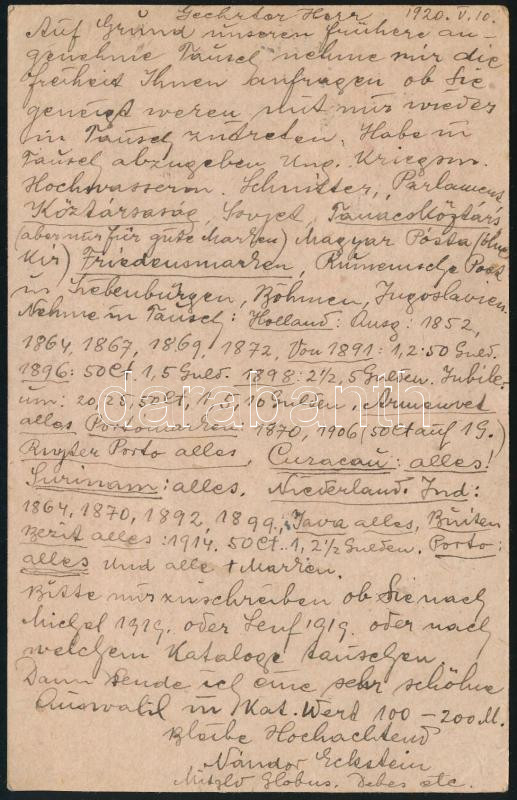 Geehrter Herr 1920. V. 10.
Auf Grund unseren frühere an-
genehme Tausch nehme mir die
Freiheit Ihnen anfragen ob Sie
geneigt weren mit mir wieder
in Tausch zutreten. Habe in
Tausch abzugeben Ung. Kriegsm.
Hochwasserm. Schnitter, Parlament
Köztársaság, Sovjet, Tanácsköztárs
(aber nur für gute Marken) Magyar Pósta (ohne
Kir) Friedensmarken, Rumenische Post
in Siebenbürgen, Böhmen, Jugoslavien.
Nehme in Tausch: Holland: Ausg: 1852,
1864, 1867, 1869, 1872, Von 1891: 1, 2·50 Guld.
1896: 50 Ct. 1, 5 Guld. 1898: 2½, 5 Gulden. Jubile-
um: 20, 25, 50 Ct, 1, 5, 10 Gulden, Armenwet
alles, Portomarken 1870, 1906 (50 Ct auf 1 G.)
Ruyter Porto alles, Curacau: alles!
Surinam: alles. Niederland. Ind:
1864, 1870, 1892, 1899, Java alles, Buiten
Bezit alles: 1914. 50 Ct. 1, 2½ Gulden. Porto:
alles und alle + Marken.
Bitte mir zuschreiben ob Sie nach
Michel 1919. oder Senf 1919. oder nach
welchem Kataloge tauschen
Dann sende ich eine sehr schöhne
Auswahl in Kat. Wert 100–200 M.
Bleibe Hochachtend
Nándor Eckstein
Mitgld Globus. Debes etc.
darabanth